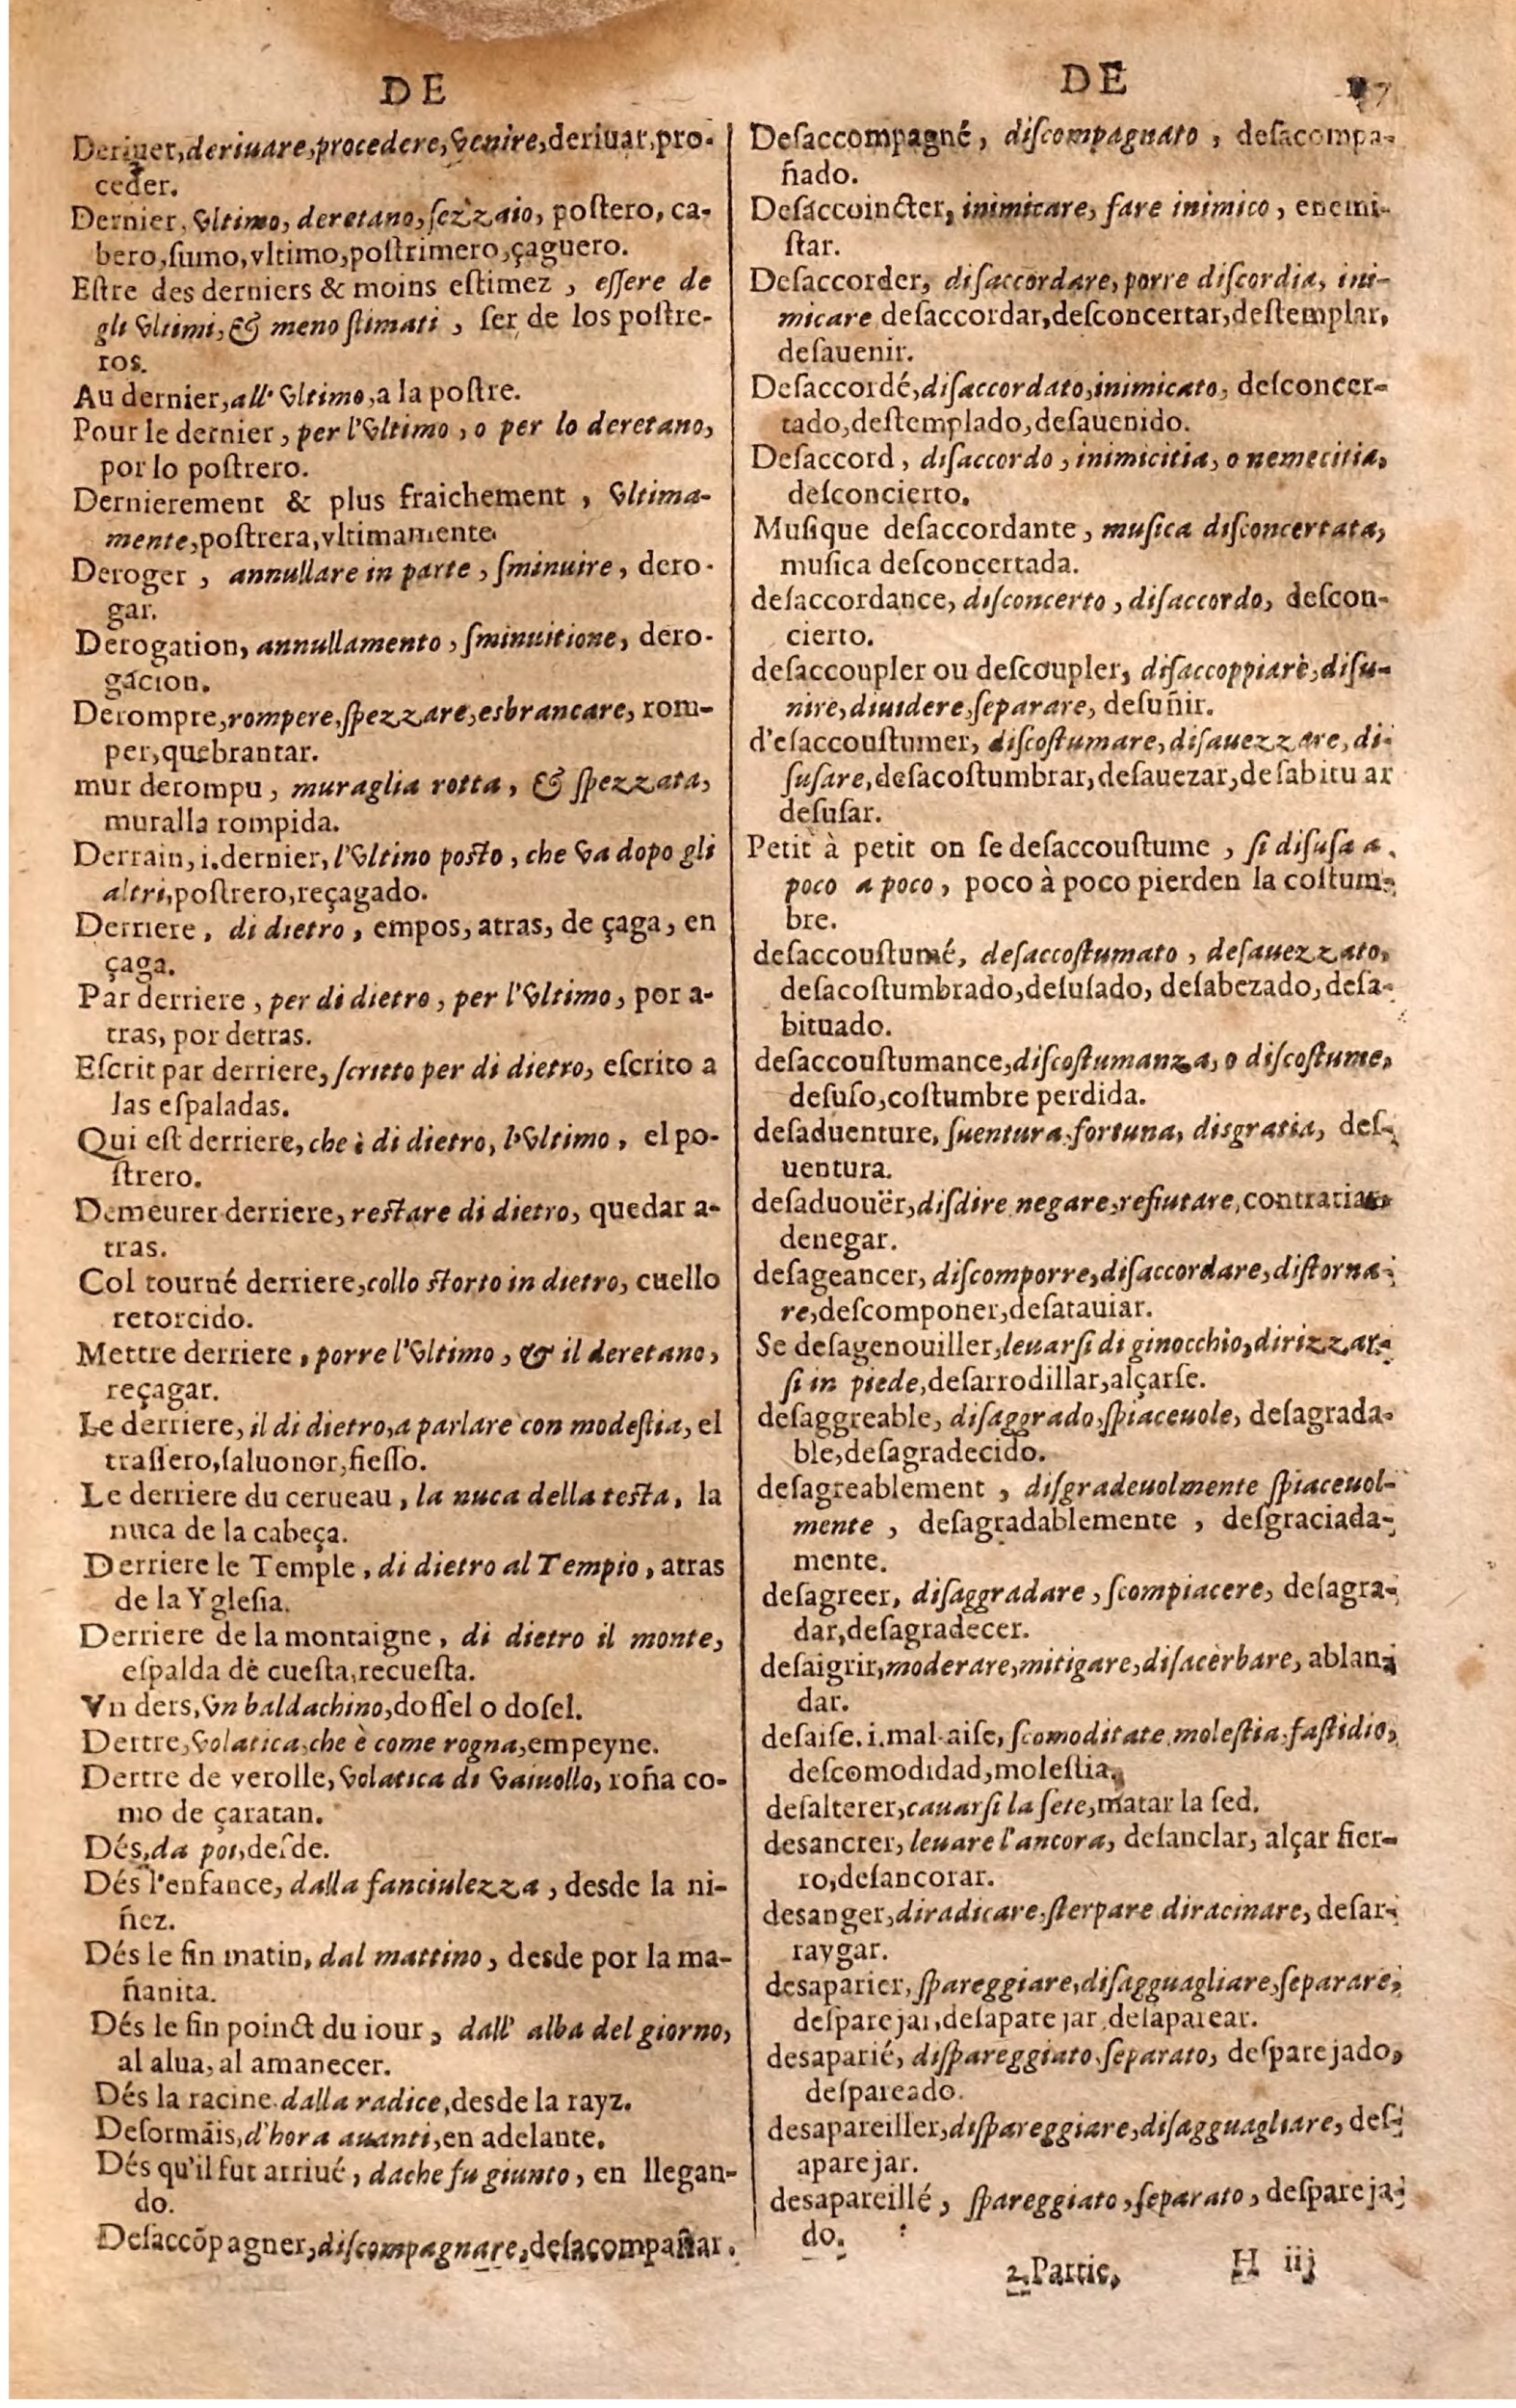 DE
Deriuer, deriuare, procedere, venire, deriuar, pro-
ceder.
Dernier, vltimo, deretano, ſezzaio, poſtero, ca-
bero, ſumo, vltimo, poſtrimero, çaguero.
Eſtre des derniers & moins eſtimez, eſſere de
gli vltimi, & meno ſtimati, ſer de los poſtre-
ros.
Au dernier, all' vltimo, a la poſtre.
Pour le dernier, per l'vltimo, o per lo deretano,
por lo poſtrero.
Dernierement & plus fraichement, vltima-
mente, poſtrera, vltimamente.
Deroger, annullare in parte, ſminuire, dero-
gar.
Derogation, annullamento, ſminuitione, dero-
gacion.
Derompre, rompere, ſpezzare, esbrancare, rom-
per, quebrantar.
mur derompu, muraglia rotta, & ſpezzata,
muralla rompida.
Derrain, i. dernier, l'vltino poſto, che va dopo gli
altri, poſtrero, reçagado.
Derriere, di dietro, empos, atras, de çaga, en
çaga.
Par derriere, per di dietro, per l'vltimo, por a-
tras, por detras.
Eſcrit par derriere, ſcritto per di dietro, eſcrito a
las eſpaladas.
Qui eſt derriere, che è di dietro, l'vltimo, el po-
ſtrero.
Demeurer derriere, reſtare di dietro, quedar a-
tras.
Col tourné derriere, collo ſtorto in dietro, cuello
retorcido.
Mettre derriere, porre l'vltimo, & il deretano,
reçagar.
Le derriere, il di dietro, a parlare con modeſtia, el
traſſero, ſaluonor, fieſſo.
Le derriere du cerueau, la nuca della teſta, la
nuca de la cabeça.
Derriere le Temple, di dietro al Tempio, atras
de la Ygleſia.
Derriere de la montaigne, di dietro il monte,
eſpalda de cueſta, recueſta.
Vn ders, vn baldachino, doſſel o doſel.
Dertre, volatica, che è come rogna, empeyne.
Dertre de verolle, volatica di vaiuollo, roña co-
mo de çaratan.
Dés, da poi, deſde.
Dés l'enfance, dalla fanciulezza, desde la ni-
ñez.
Dés le fin matin, dal mattino, desde por la ma-
ñanita.
Dés le fin poinct du iour, dall' alba del giorno,
al alua, al amanecer.
Dés la racine. dalla radice, desde la rayz.
Deſormais, d'hora auanti, en adelante.
Dés qu'il fut arriué, dache fu giunto, en llegan-
do.
Deſaccõpagner, diſcompagnare, deſacompañar.
DE
Deſaccompagné, diſcompagnato, deſacompa-
ñado.
Deſaccoincter, inimicare, fare inimico, enemi-
ſtar.
Deſaccorder, diſaccordare, porre diſcordia, ini-
micare deſaccordar, deſconcertar, deſtemplar,
deſauenir.
Deſaccordé, diſaccordato, inimicato, deſconcer-
tado, deſtemplado, deſauenido.
Deſaccord, diſaccordo, inimicitia, o nemecitia,
deſconcierto.
Muſique deſaccordante, muſica diſconcertata,
muſica deſconcertada.
deſaccordance, diſconcerto, diſaccordo, deſcon-
cierto.
deſaccoupler ou deſcoupler, diſaccoppiare, diſu-
nire, diuidere, ſeparare, deſuñir.
d'eſaccouſtumer, diſcoſtumare, diſauezzare, di-
ſuſare, deſacoſtumbrar, deſauezar, deſabitu ar
deſuſar.
Petit à petit on ſe deſaccouſtume, ſi diſuſa a
poco a poco, poco à poco pierden la coſtum-
bre.
deſaccouſtumé, deſaccoſtumato, deſauezzato,
deſacoſtumbrado, deſuſado, deſabezado, deſa-
bituado.
deſaccouſtumance, diſcoſtumanza, o diſcoſtume,
deſuſo, coſtumbre perdida.
deſaduenture, ſuentura, fortuna, disgratia, deſ-
uentura.
deſaduouër, diſdire negare, refiutare, contratiar
denegar.
deſageancer, diſcomporre, diſaccordare, diſtorna-
re, deſcomponer, deſatauiar.
Se deſagenouiller, leuarſi di ginocchio, dirizzar-
ſi in piede, deſarrodillar, alçarſe.
deſaggreable, diſaggrado, ſpiaceuole, deſagrada-
ble, deſagradecido.
deſagreablement, diſgradeuolmente ſpiaceuol-
mente, deſagradablemente, deſgraciada-
mente.
deſagreer, diſaggradare, ſcompiacere, deſagra-
dar, deſagradecer.
deſaigrir, moderare, mitigare, diſacerbare, ablan-
dar.
deſaiſe. i. mal-aiſe, ſcomoditate, moleſtia, faſtidio,
deſcomodidad, moleſtia.
deſalterer, cauarſi la ſete, matar la ſed.
desancrer, leuare l'ancora, deſanclar, alçar fier-
ro, deſancorar.
desanger, diradicare, ſterpare diracinare, deſar-
raygar.
desaparier, ſpareggiare, diſagguagliare, ſeparare,
deſparejar, deſaparejar, deſaparear.
desaparié, diſpareggiato, ſeparato, deſparejado,
deſpareado.
desapareiller, diſpareggiare, diſagguagliare, deſ-
aparejar.
desapareillé, ſpareggiato, ſeparato, deſpareja-
do.
2. Partie,
H iij